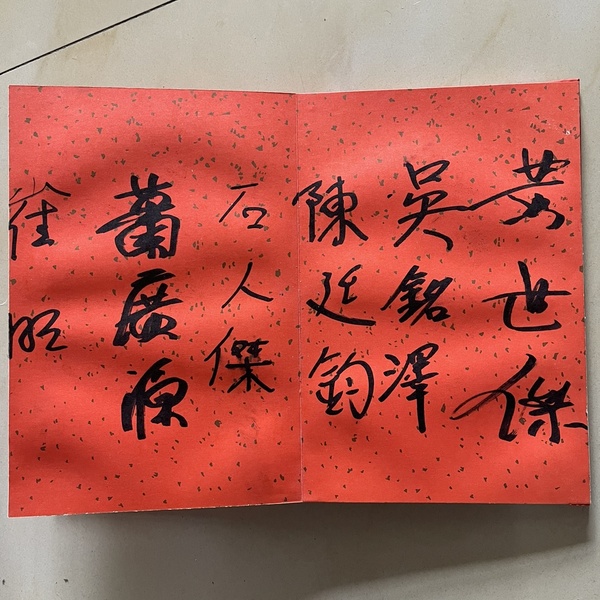 黄世傑
吳銘澤
陳廷鈞
石人傑
蕭廣源
崔明